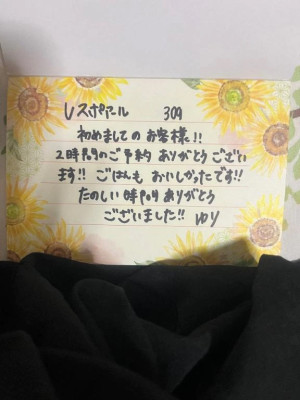 Vスポアール 309
初めましてのお客様!!
2時間のご予約 ありがとうござい
ます!! ごはんも おいしかったです!!
たのしい時間 ありがとう
ございました!! ゆり